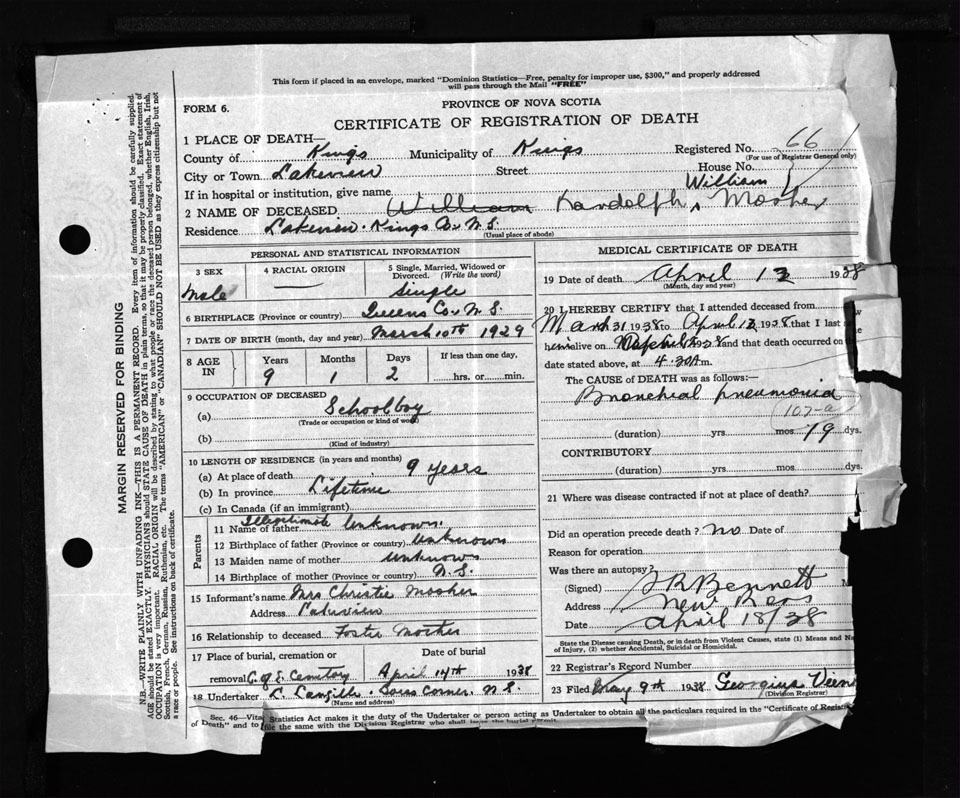 This form if placed in an envelope, marked "Dominion Statistics—Free, penalty for improper use, $300," and properly addressed
will pass through the Mail "FREE"
FORM 6.
PROVINCE OF NOVA SCOTIA
CERTIFICATE OF REGISTRATION OF DEATH
1 PLACE OF DEATH—
Registered No. 66
(For use of Registrar General only)
County of Kings Municipality of Kings
City or Town Lakeview Street House No.
If in hospital or institution, give name
William
2 NAME OF DECEASED William Randolph Mosher
Residence Lakeview. Kings Co. N.S.
(Usual place of abode)
PERSONAL AND STATISTICAL INFORMATION
3 SEX
Male
4 RACIAL ORIGIN
5 Single, Married, Widowed or Divorced. (Write the word)
Single
6 BIRTHPLACE (Province or country) Queens Co. N.S.
7 DATE OF BIRTH (month, day and year) March 10th 1929
8 AGE IN
Years Months Days If less than one day,
9 1 2 hrs. or min.
9 OCCUPATION OF DECEASED
(a) Schoolboy
(Trade or occupation or kind of work)
(b)
(Kind of industry)
10 LENGTH OF RESIDENCE (in years and months)
(a) At place of death 9 years
(b) In province Lifetime
(c) In Canada (if an immigrant)
Parents
11 Name of father Illegitimate Unknown.
12 Birthplace of father (Province or country) Unknown
13 Maiden name of mother Unknown
14 Birthplace of mother (Province or country) N.S.
15 Informant's name Mrs Christie Mosher
Address Lakeview
16 Relationship to deceased Foster Mother
17 Place of burial, cremation or Date of burial
removal C. of E. Cemetery April 14th 1938
18 Undertaker L. Langille. N.S.
(Name and address)
MEDICAL CERTIFICATE OF DEATH
19 Date of death April 13 1938
(Month, day and year)
20 I HEREBY CERTIFY that I attended deceased from
March 31 1938 to April 13 1938 that I last saw
him alive on 1938 and that death occurred on the
date stated above, at 4.30 A m.
The CAUSE of DEATH was as follows:—
Bronchial pneumonia
107-a
(duration) yrs. mos. 19 dys.
CONTRIBUTORY
(duration) yrs. mos. dys.
21 Where was disease contracted if not at place of death?
Did an operation precede death? no Date of
Reason for operation
Was there an autopsy?
(Signed) Bennett
Address New Ross
Date April 18/38
State the Disease causing Death, or in death from Violent Causes, state (1) Means and
of Injury, (2) whether Accidental, Suicidal or Homicidal.
22 Registrar's Record Number
23 Filed May 9th 1938
(Division Registrar)
Sec. 46—Vital Statistics Act makes it the duty of the Undertaker or person acting as Undertaker to obtain all the particulars required in the "Certificate of Registr
of Death" and to file the same with the Division Registrar who shall issue the burial permit.
MARGIN RESERVED FOR BINDING
N.B.—WRITE PLAINLY WITH UNFADING INK—THIS IS A PERMANENT RECORD. Every item of information should be carefully supplied.
AGE should be stated EXACTLY. PHYSICIANS should STATE CAUSE OF DEATH in plain terms, so that it may be properly classified. Exact statement of
OCCUPATION is very important. RACIAL ORIGIN will be described by stating to what people or race the deceased person belonged, whether English, Irish,
Scottish, French, German, Russian, Ruthenian, etc. The terms "AMERICAN" or "CANADIAN" SHOULD NOT BE USED as they express citizenship but not
a race or people. See instructions on back of certificate.